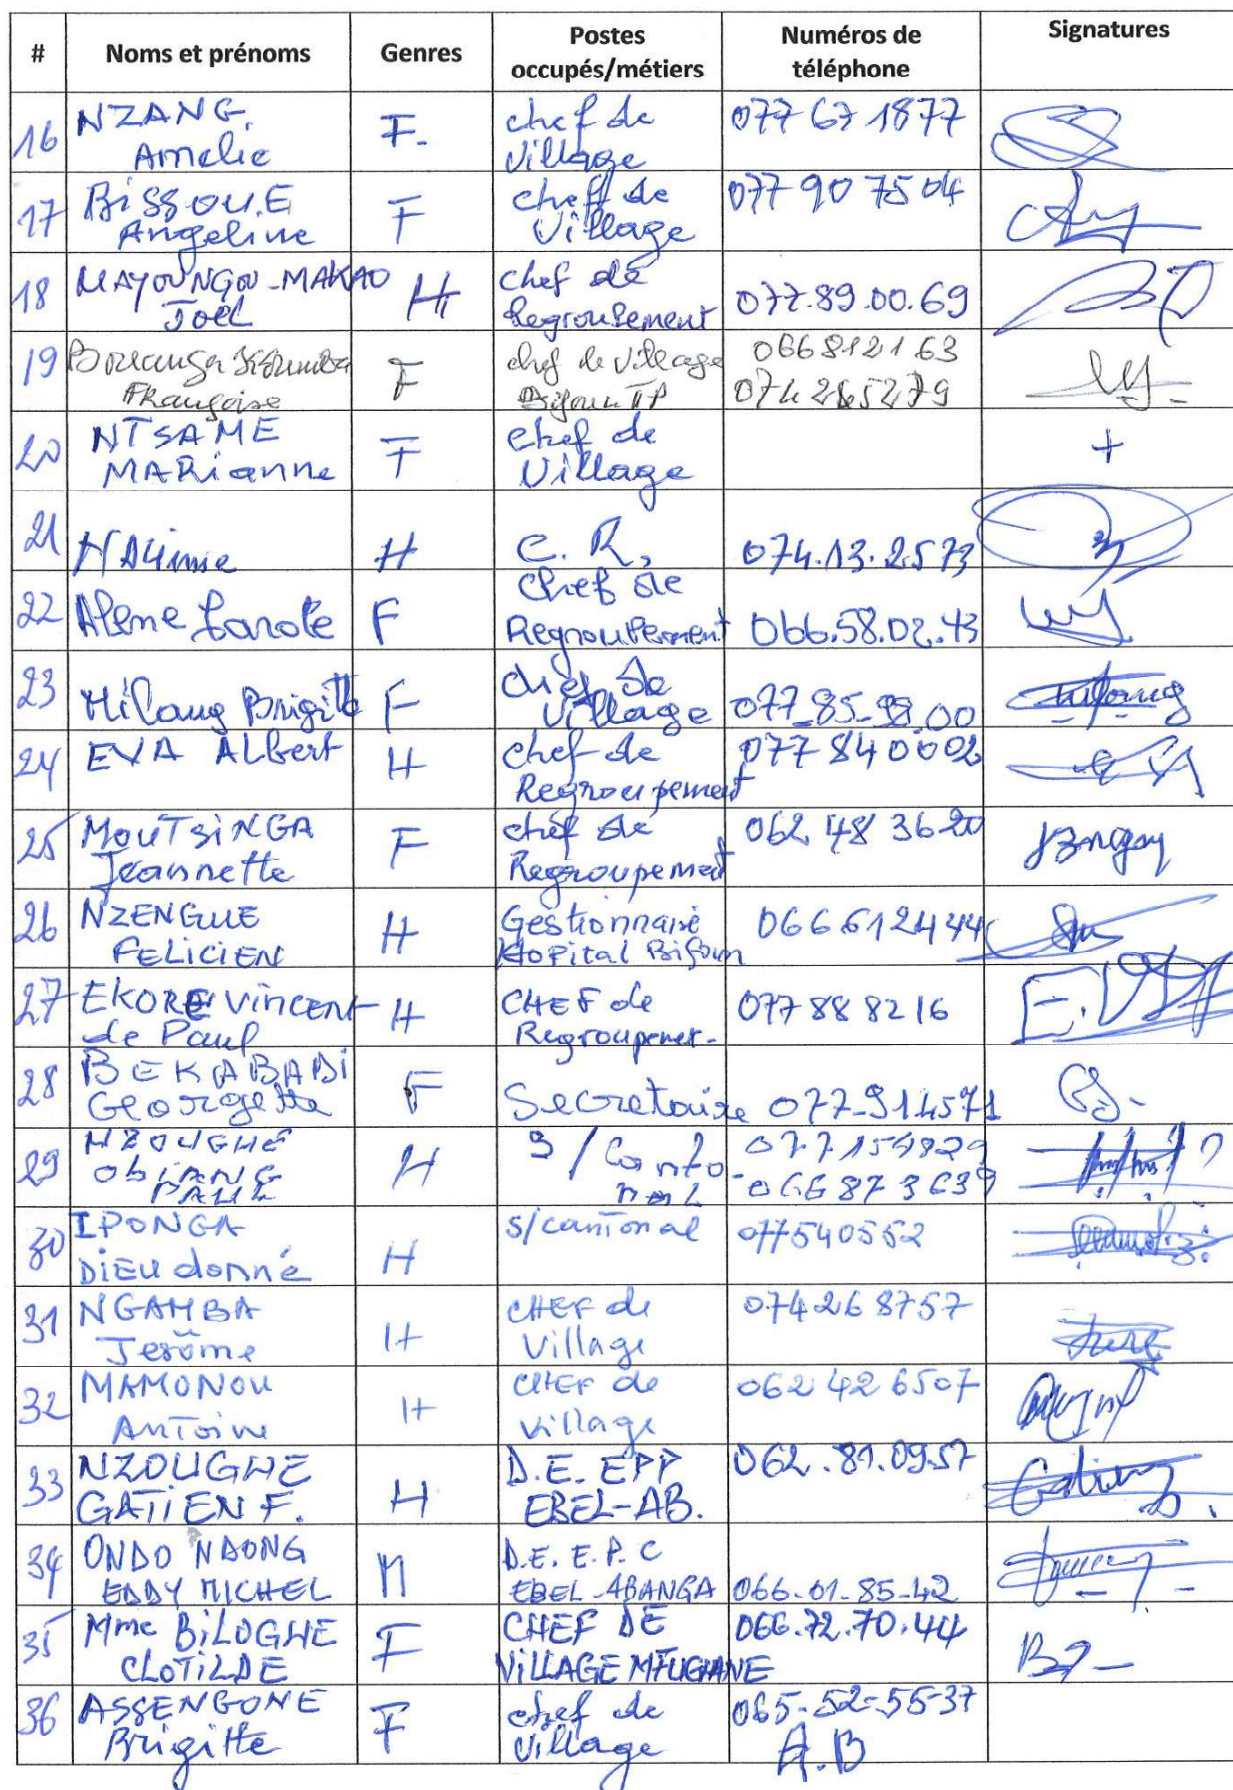 # Noms et prénoms Genres Postes occupés/métiers Numéros de téléphone Signatures
16 NZANG Amelie F. chef de Village 077 67 1877
17 BISSOUE Angeline F chef de Village 077 90 75 04
18 MAYOUNGOU-MAKAO Joël H chef de Regroupement 077.89.00.69
19 Françoise F chef de Village Bifoun TP 066812163 074265279
20 NTSAME MARianne F chef de Village +
21 H C. R, 074.13.2573
22 Alene Carole F Chef de Regroupement 066.58.02.43
23 Milang Brigitte F chef de Village 077_85_99.00
24 EVA ALbert H chef de Regroupement 077 840002
25 MOUTSINGA Jeannette F chef de Regroupement 062 48 36 20
26 NZENGUE FELICIEN H Gestionnaire Hopital Bifoun 066612444
27 EKORE Vincent de Paul H CHEF de Regroupemet. 077 88 82 16
28 BEKABADI Georgette F Secretaire 077-914571
29 NZOUGHE OBIANG PAUL H S/Cantonal 077154829 066873639
30 IPONGA DIEUdonné H s/cantonal 077540552
31 NGAMBA Jerôme H CHEF de Village 074268757
32 MAMONOU ANToine H CHEF de village 062 426507
33 NZOUGHE GATIEN F. H D.E. EPP EBEL-AB. 062.81.0957
34 ONDO NDONG EDDY MICHEL M D.E. E.P.C EBEL-ABANGA 066-01-85-42
35 Mme BILOGHE CLOTILDE F CHEF DE VILLAGE MFUGIANE 066.72.70.44
36 ASSENGONE Brigitte F chef de Village 065-52-55-37 A.B